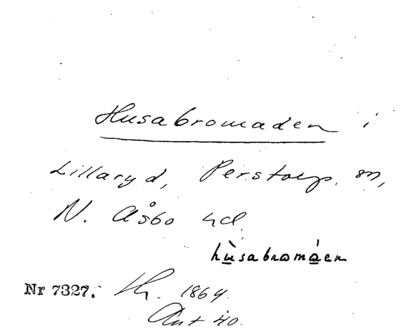 Husabromaden i
Lillaryd, Perstorp sn,
N. Åsbo hd.
hùsabromáen
Nr 7327. 1864
Ant 40.